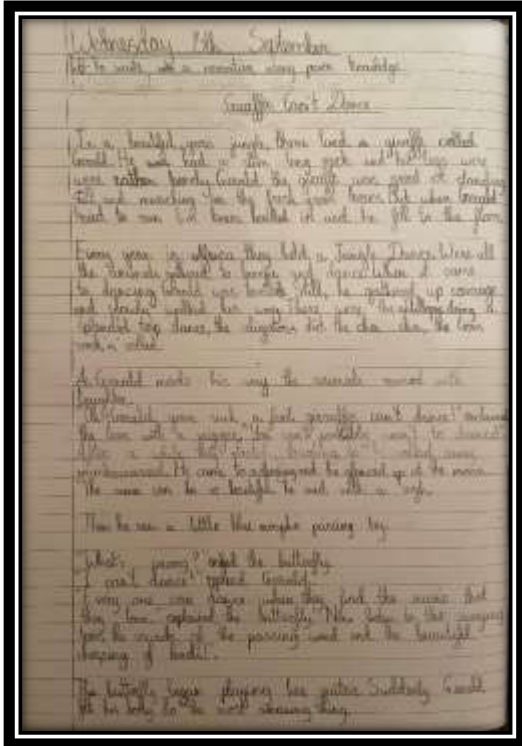 Wednesday September
to write a narrative using prior knowledge
Giraffes Can't Dance
In a beautiful green jungle, there lived a giraffe called
Gerald. He had a thin long neck and his legs were
were rather bandy. Gerald the giraffe was good at standing
still and munching the fresh green leaves. But when Gerald
tried to run his knees in and he fell to the floor.
Every year in Africa they held a Jungle Dance. Were all
the animals gathered to and dance. When it came
to dancing Gerald was Still, he gathered up courage
and slowly walked his way. There were, the doing a
splendid tap dance, the did the cha cha, the lions
rock n rolled.
As Gerald made his way the animals roared with
laughter.
"Oh Gerald your such a fool giraffes can't dance"
the lion with a "You can't possibly want to dance"
After a while
He came to a and he glanced up at the moon.
"The moon can be so beautiful" he said with a sigh.
Then he saw a little blue passing by.
"What's wrong?" asked the butterfly.
"I can't dance" replied Gerald.
"Every one can dance when they find the music that
they love" explained the butterfly. "Now listen to the swaying
the sounds of the passing wind and the beautiful
chirping of birds".
The butterfly began playing her guitar. Suddenly Gerald
felt his body do the most amazing thing.